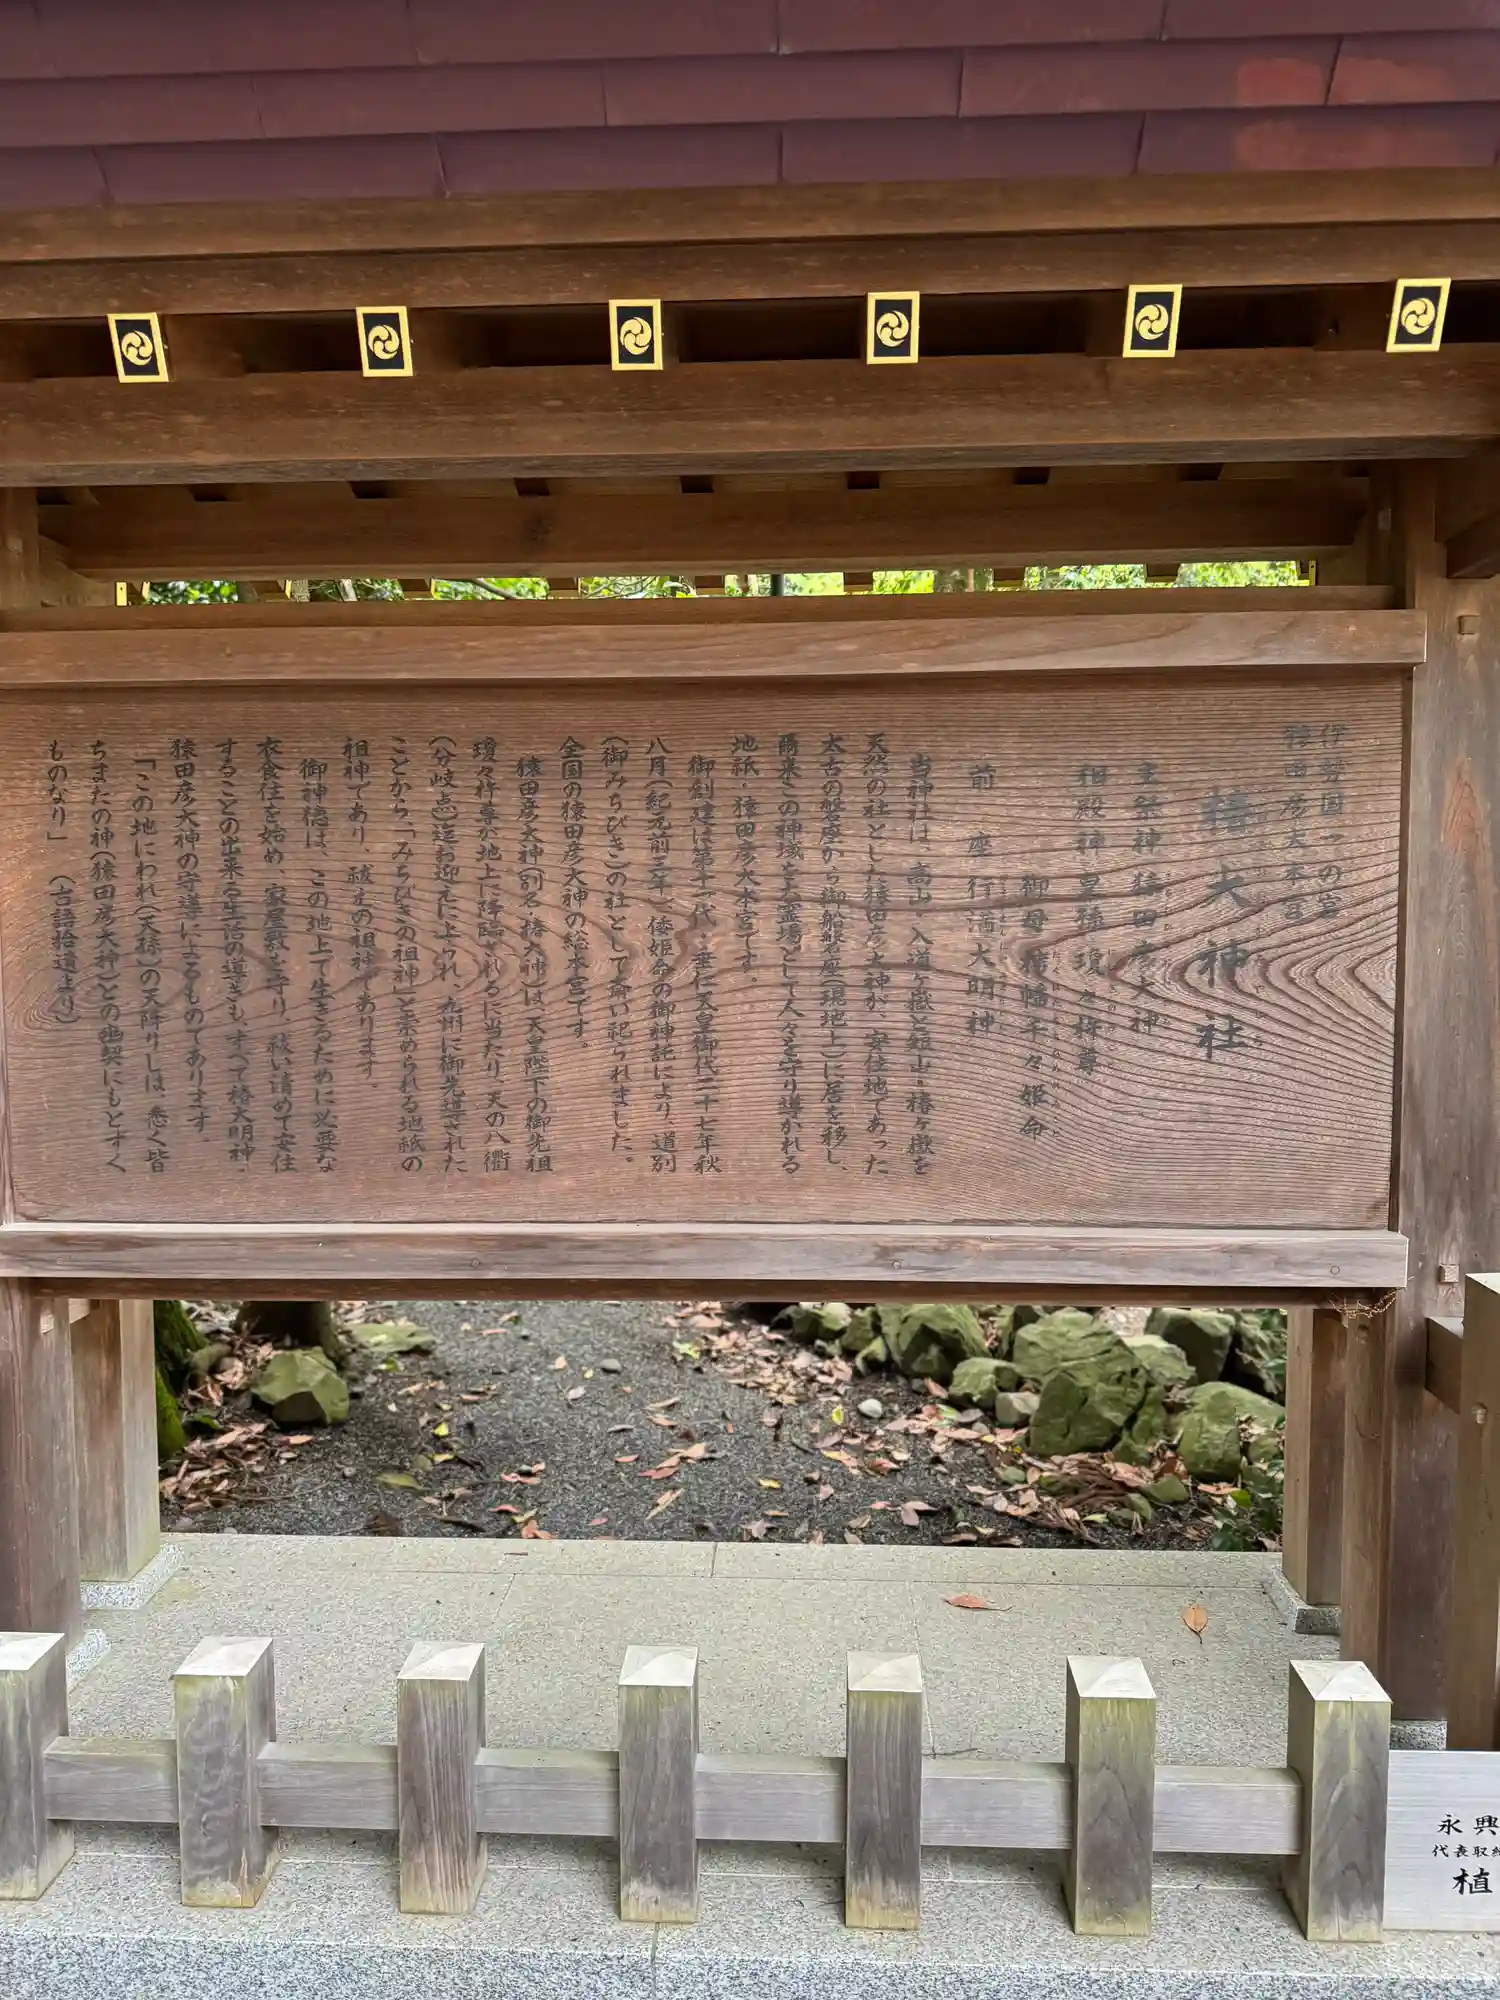 伊勢国一の宮
猿田彦大本宮
椿大神社
主祭神 猿田彦大神
相殿神 皇孫 瓊々杵尊
御母 栲幡千々姫命
前座 行満大明神
当神社は、高山・入道ヶ嶽と短山・椿ヶ嶽を
天然の社とした猿田彦大神が、安住地であった
太古の磐座から御船磐座(現地上)に居を移し、
爾来この神域を大霊場として人々を守り導かれる
地祇・猿田彦大本宮です。
御創建は第十一代・垂仁天皇御代二十七年秋
八月(紀元前三年)倭姫命の御神託により、道別
(御みちびき)の社として斎い祀られました。
全国の猿田彦大神の総本宮です。
猿田彦大神(別名・椿大神)は天皇陛下の御先祖
瓊々杵尊が地上に降臨されるに当たり、天の八衢
(分岐点)迄お迎えに上られ、九州に御先導された
ことから、「みちびきの祖神」と崇められる地祇の
祖神であり、祓之の祖神であります。
御神徳は、この地上で生きるために必要な
衣食住を始め、家屋敷を守り、祓い清めて安住
することの出来る生活の導きも、すべて椿大明神・
猿田彦大神の守導によるものであります。
「この地にわれ(天孫)の天降りしは、悉く皆
ちまたの神(猿田彦大神)との幽契にもとずく
ものなり」 (古語拾遺より)
永興
代表取締
植